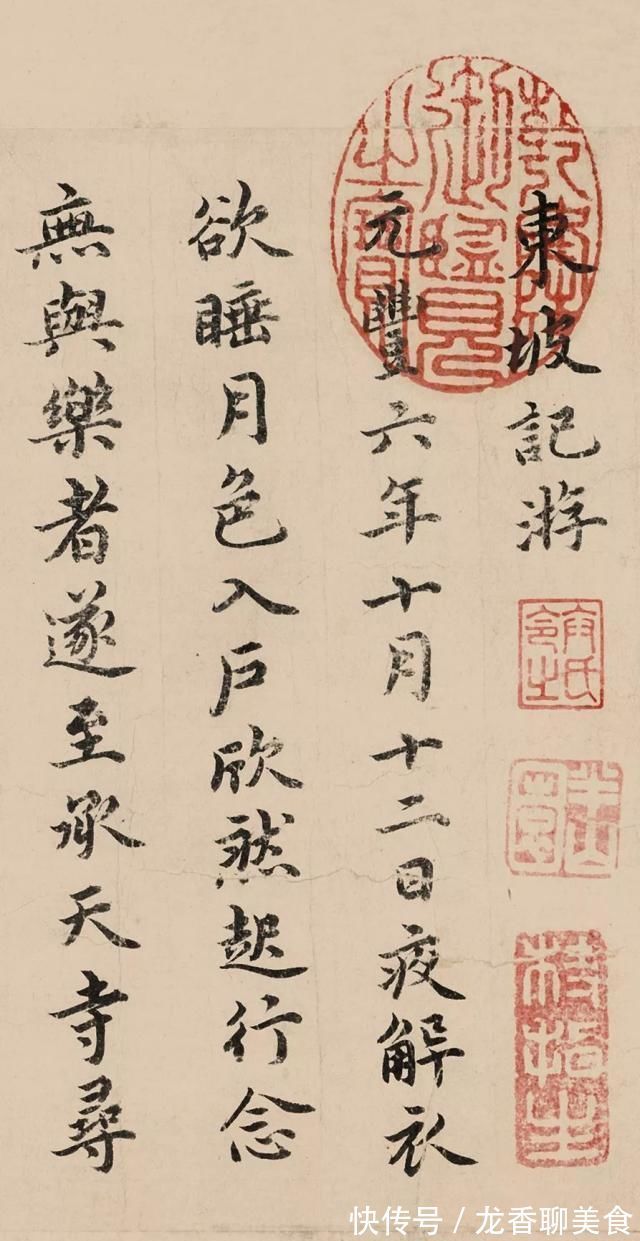 東坡記游
元豐六年十月十二日夜解衣
欲睡月色入戶欣然起行念
無與樂者遂至承天寺尋
快传号／龙香聊美食